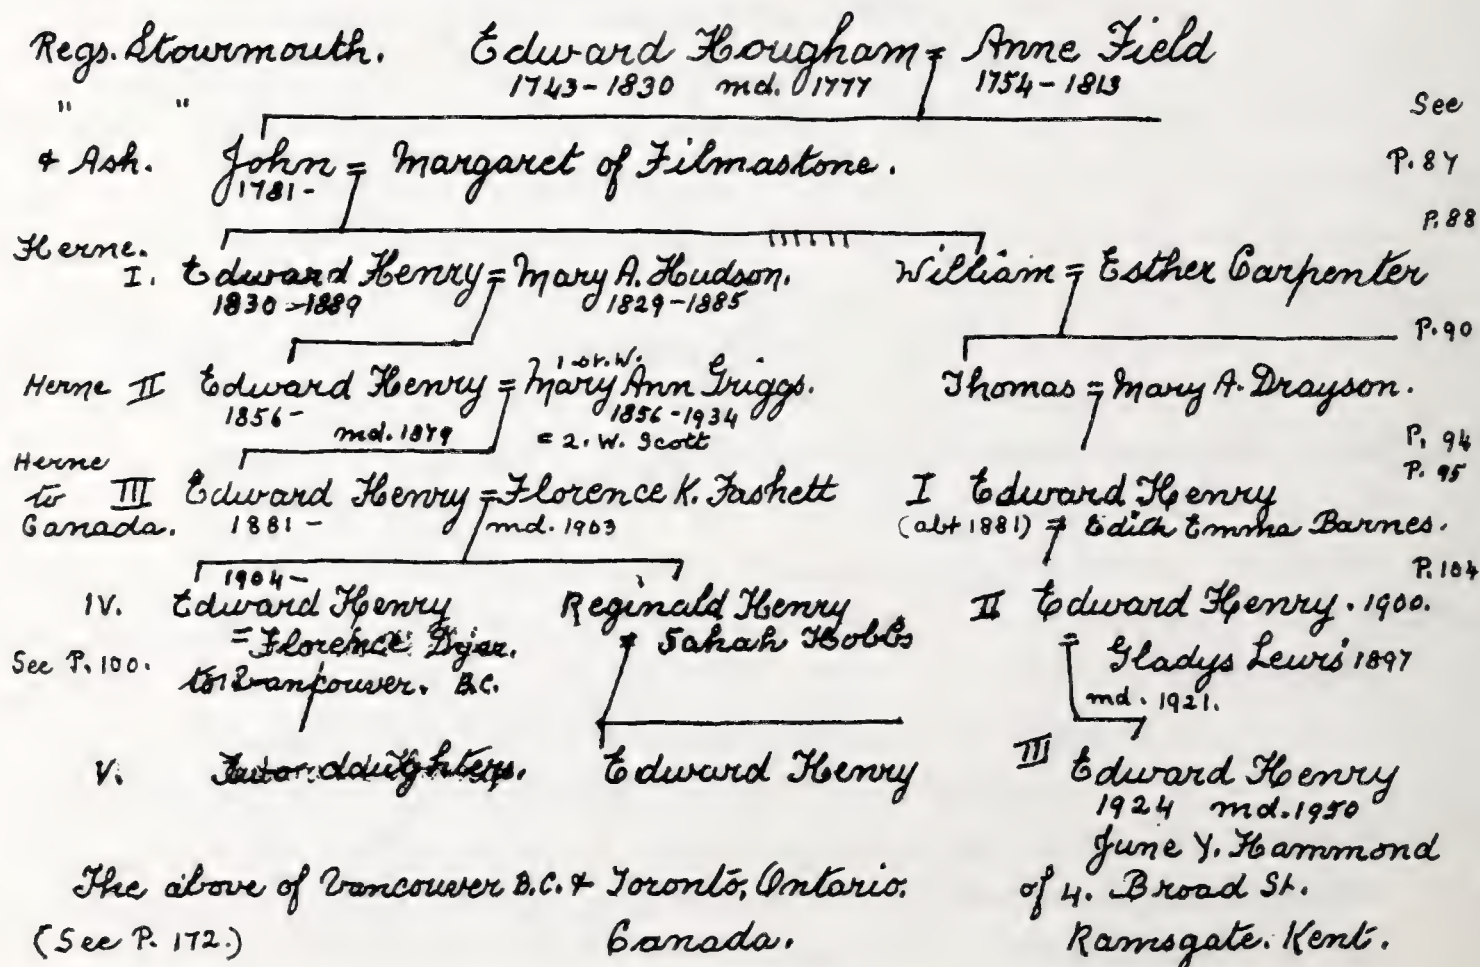 Regs. Stourmouth. Edward Hougham = Anne Field
1743-1830 md. 1777 1754-1813
" " See
& Ash. John = Margaret of Filmastone. P. 87
1781-
P. 88
Herne.
I. Edward Henry = Mary A. Hudson. William = Esther Carpenter
1830-1889 1829-1885
P. 90
1st. W.
Herne II Edward Henry = Mary Ann Griggs. Thomas = Mary A. Drayson.
1856- md. 1879 1856-1934
= 2. W. Scott P. 94
Herne P. 95
to III Edward Henry = Florence K. Fashett I Edward Henry
Canada. 1881- md. 1903 (abt 1881) = Edith Emma Barnes.
1904- P. 104
IV. Edward Henry Reginald Henry II Edward Henry. 1900.
= Florence Dyer. = Sahah Hobbs = Gladys Lewis 1897
See P. 100. to Vancouver. B.C. md. 1921.
V. daughters. Edward Henry III Edward Henry
1924 md. 1950
June Y. Hammond
The above of Vancouver B.C. & Toronto, Ontario. of 4. Broad St.
(See P. 172.) Canada. Ramsgate. Kent.